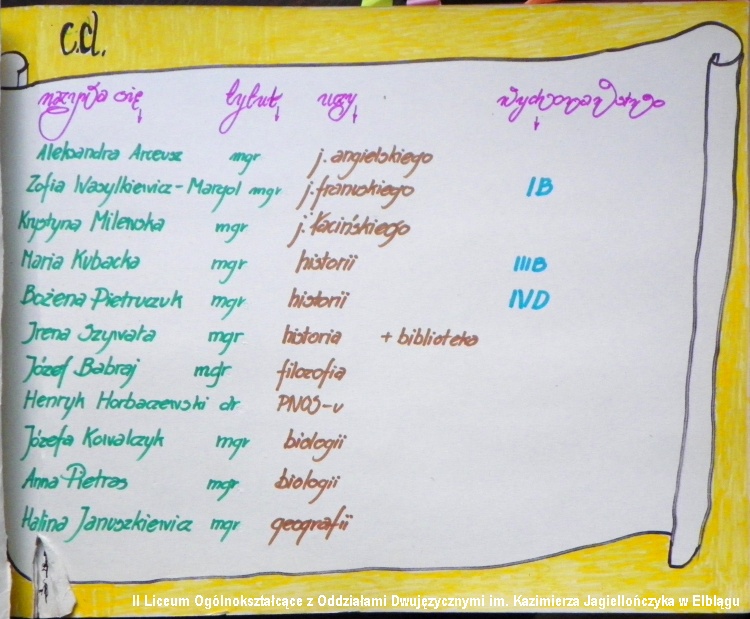 c.d.
nazywa się tytuł uczy wychowawstwo
Aleksandra Arceusz mgr j. angielskiego
Zofia Wasylkiewicz-Margol mgr j. francuskiego IB
Krystyna Milewska mgr j. łacińskiego
Maria Kubacka mgr historii IIIB
Bożena Pietruczuk mgr historii IVD
Irena Szywała mgr historia + biblioteka
Józef Babraj mgr filozofia
Henryk Horbaczewski dr PNOS-u
Józefa Kowalczyk mgr biologii
Anna Pietras mgr biologii
Halina Januszkiewicz mgr geografii
II Liceum Ogólnokształcące z Oddziałami Dwujęzycznymi im. Kazimierza Jagiellończyka w Elblągu